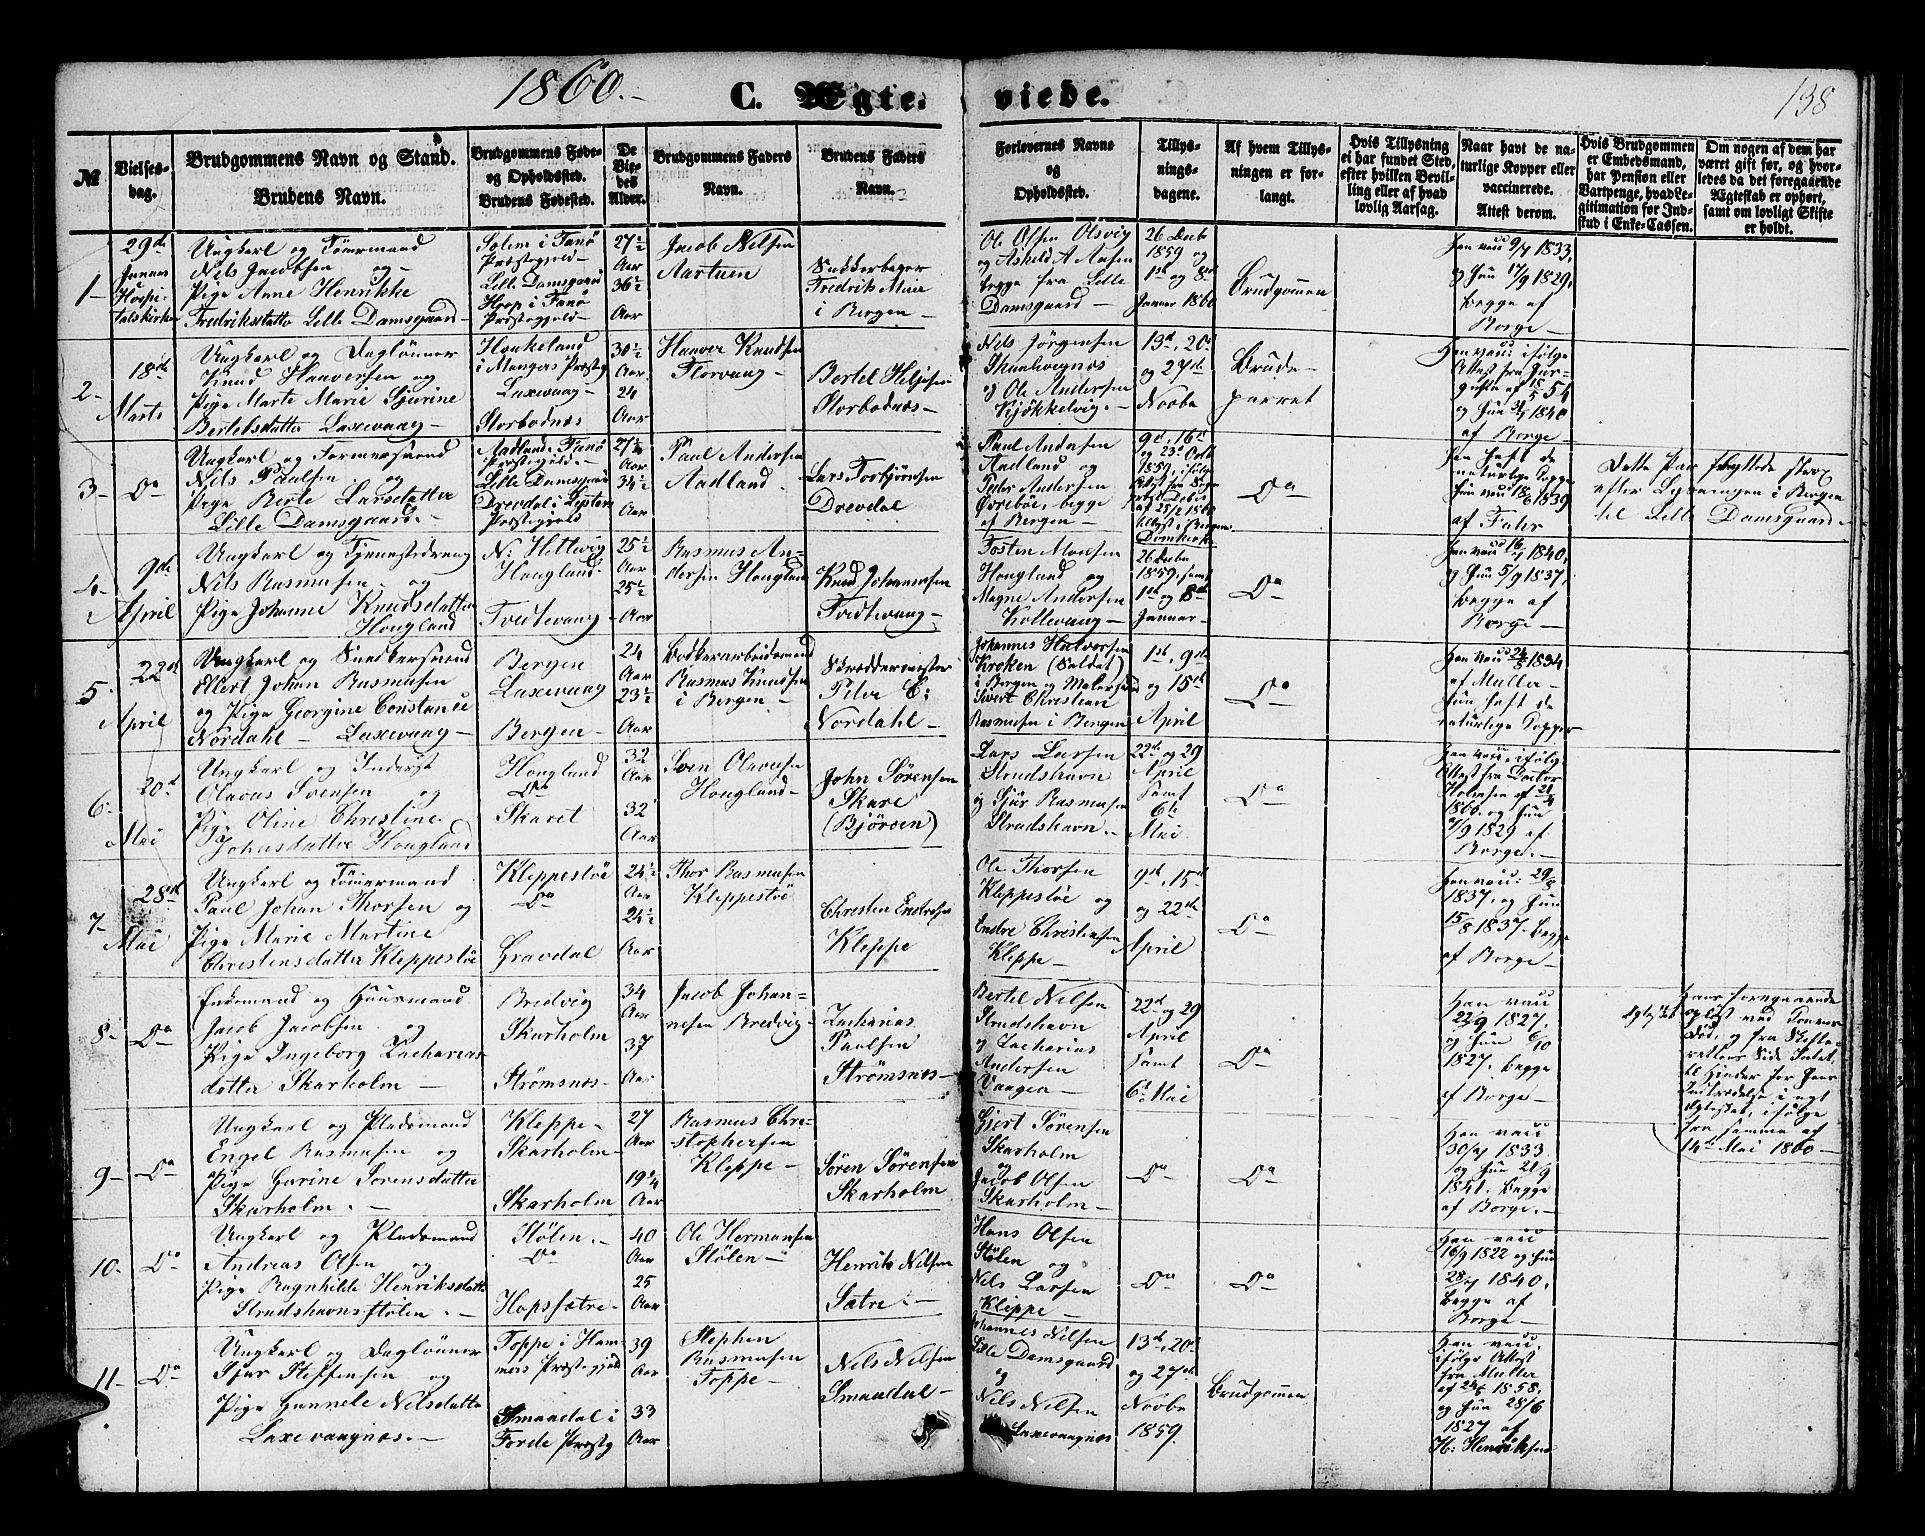 1860.-
C. Ægte-
viede.
138
№
Vielses-
dag.
Brudgommens Navn og Stand.
Brudens Navn.
Brudgommens Føde-
og Opholdssted.
Brudens Fødested.
De
Vie-
des
Alder.
Brudgommens Faders
Navn.
Brudens Faders
Navn.
Forlovernes Navne
og
Opholdssted.
Tillys-
nings-
dagene.
Af hvem Tillys-
ningen er for-
langt.
Hvis Tillysning
ei har fundet Sted,
efter hvilken Bevil-
ling eller af hvad
lovlig Aarsag.
Naar havt de na-
turlige Kopper eller
vaccinerede.
Attest derom.
Hvis Brudgommen
er Embedsmand,
har Pension eller
Vartpenge, hvad Le-
gitimation for Ind-
skud i Enke-Cassen.
Om nogen af dem har
været gift før, og hvor-
ledes da det foregaaende
Ægteskab er ophørt,
samt om lovligt Skifte
er holdt.
1-
29de
Januar
Hospi-
talskirken
Ungkarl og Tømrmand
Nils Jacobsen og
Pige Anne Henrikke
Fredriksdatter Lille Damsgaard-
Solem i Fanø
Præstegjeld-
Lille Damsgaard
Hoop i Fanø
Præstegjeld-
27½
Aar
36½
Aar
Jacob Nilsen
Aartuen
Sukkerbager
Fredrik Meier
i Bergen-
Ole Olsen Olsvig
og Askeld A Aasen
begge fra Lille
Damsgaard-
26 Decbr
1859 og
1st og 8de
Januar 1860
Brudgommen
Han vacc 9/7 1833,
og Hun 17/9 1829,
begge af
Borge-
2-
18de
Marts
Ungkarl og Daglønner
Knud Haaversen og
Pige Marte Marie Sjurine
Bertelsdatter Laxevaag-
Haukeland
i Mangers Præstg
Laxevaag-
Storbodnæs
30½
Aar
24
Aar
Haaver Knudsen
Florvaag-
Bertel Heljesen
Storbodnæs-
Nils Jørgensen
Skaalevignæs
og Ole Andersen
Kjøkkelvig.-
13de, 20de
og 27de
Novbr
Brude-
parret
Han vacc: ifølge
Attest fra
af 15/5 54
og Hun 3/7 1840
af Borge-
3-
Do
Ungkarl og Farversvend
Nils Paulsen og
Pige Berte Larsdatter
Lille Damsgaard.-
Aadland i Fanø
Præstegjeld.-
Lille Damsgaard
Drevdal i Lyster
Præstegjeld
27½
Aar
34½
Aar
Paul Andersen
Aadland.-
Lars Torbjørnsen
Drevdal
Paul Andersen
Aadland og
Peder Andersen
Øvrebøe, begge
af Bergen-
9de, 16de
og 23de Octb
1859, ifølge
af 25/2 1860
tillyst i Bergens
Domkirke
Do
Han haft de
naturlige Kopper
Hun vacc 18/6 1839
af Faler
Dette Par flyttede strax
efter Lysningen i Bergen
til Lille Damsgaard-
4-
9de
April
Ungkarl og Tjenestedreng
Nils Rasmusen og
Pige Johanne Knudsdatter
Hougland
N: Hettevig
Hougland.
Tvedtevaag-
25½
Aar
25½
Aar
Rasmus An-
dersen Hougland
Knud Johannesen
Tvedtevaag-
Tosten Monsen
Hougland og
Magne Andersen
Kollevaag-
26 Decbr
1859, samt
1st og 8de
Januar-
Do
Han vacc 16/7 1840,
og Hun 5/9 1837,
begge af
Borge-
5-
22de
April
Ungkarl og Snedkersvend
Ellert Johan Rasmusen
og Pige Georgine Constance
Nordahl- Laxevaag-
Bergen
Laxevaag
Bergen-
24
Aar
23½
Aar
Bødkerarbeidsmand
Rasmus Knudsen
i Bergen-
Skræddermester
Peter C:
Nordahl-
Johannes Halvorsen
Kroken (Soldat)
i Bergen og Malersvend
Sivert Christian
Rasmusen i Bergen
1st, 9de
og 15de
April
Do
Han vacc 24/5 1834
af Müller-
Hun haft de
naturlige Kopper
6-
20de
Mai
Ungkarl og Inderst
Olavus Svensen og
Pige Oline Christine
Johnsdatter Hougland
Hougland
Do
Skaret
32
Aar
32
Aar
Sven Olavesen
Hougland-
John Sørensen
Skare
(Bjøroen)
Lars Larsen
Strudshavn
og Sjur Rasmusen
Strudshavn.-
22de og 29
April
samt
6te
Mai.
Do
Han vacc, ifølge
Attest fra Doctor
Holmsen af 21/4
1860, og Hun
1829 af
Borge.-
7-
28de
Mai
Ungkarl og Tømmermand
Paul Johan Thorsen og
Pige Marie Martine
Christensdatter Kleppestøe
Kleppestøe
Do
Gravdal
24½
Aar
24½
Aar
Thor Rasmusen
Kleppestøe
Christen Endresen
Kleppe
Ole Thorsen
Kleppestøe og
Endre Christensen
Kleppe-
9de, 15de
og 22de
April
Do
Han vacc: 29/8
1837, og Hun
15/8 1837- begge
af Borge-
8-
Do
Enkemand og Huusmand
Jacob Jacobsen og
Pige Ingeborg Zacharias-
datter Skarholm-
Bredvig
Skarholm
Strømsnæs-
34
Aar
37
Aar
Jacob Johan-
nesen Bredvig-
Zacharias
Paulsen
Strømsnæs-
Bertel Nilsen
Strudshavn
og Zacharias
Andersen
Vaagen-
22de og 29
April
samt
6te Mai
Do
Han vacc
22/9 1827,
og Hun 6/10
1827. begge
af Borge-
Hans foregaaende
Ægteskab
opløst ved Konens
Død, og fra Skifte-
rettens Side Intet
til Hinder for Hans
Indtrædelse i nyt
Ægteskab, ifølge
fra samme af
14de Mai 1860-
9-
Do
Ungkarl og Pladsmand
Engel Rasmusen og
Pige Gurine Sørensdatter
Skarholm.-
Kleppe-
Skarholm-
Skarholm
27
Aar
19¼
Aar
Rasmus Chri-
stophersen
Kleppe-
Søren Sørensen
Skarholm
Gjert Sørensen
Skarholm
og
Jacob Olsen
Skarholm-
Do
Do
Han vacc
30/7 1833
og Hun 21/9
1841. begge
af Borge.-
10-
Do
Ungkarl og Pladsmand
Andreas Olsen og
Pige Ragnhilde Henriksdatter
Strudshavns Støelen.-
Stølen.-
Do
Hopssætre-
40
Aar
25
Aar
Ole Hermansen
Stølen-
Henrik Nilsen
Sætre.-
Hans Olsen
Stølen
og
Nils Larsen
Kleppe-
Do
Do
Han vacc
16/9 1822 og Hun
28/7 1840,
begge af
Borge-
11-
Do
Ungkarl og Daglønner
Sjur Steffensen og
Pige Gunnele Nilsdatter
Laxevaagnæs.-
Toppe i Ham-
mers Præstegjeld
Smaadal i
Førde Præstg
39
Aar
33
Aar
Stephen
Rasmusen
Toppe-
Nils Nilsen
Smaadal-
Johannes Nilsen
Lille Damsgaard
og
Nils Nilsen
Laxevaagnæs
13de, 20de
og 27de
Novbr
1859.
Brudgommen
Han vacc,
ifølge Attest
fra Müller
af 24/5 1858,
og Hun 28/6
1827 af
H: Henriksen